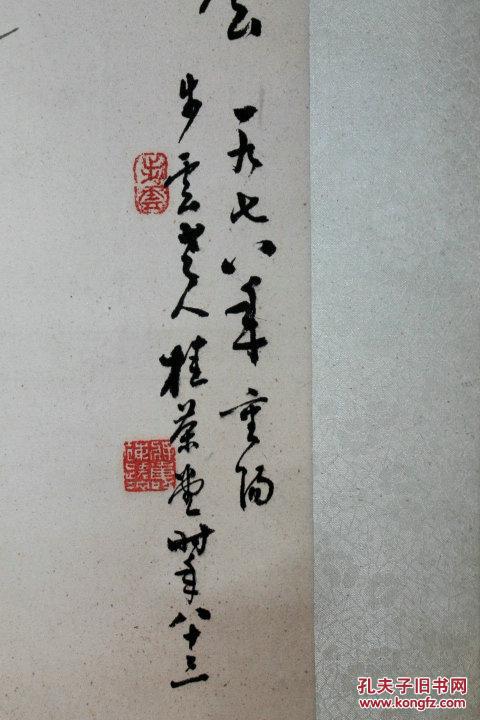 一九七八年重陽
步雲老人桂堂时年八十三
步雲
孔夫子旧书网
www.kongfz.com